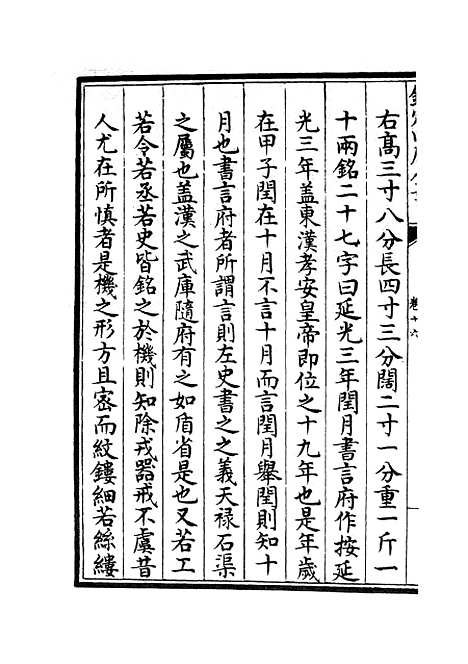 卷十六
右髙三寸八分長四寸三分闊二寸一分重一斤一
十兩銘二十七字曰延光三年閏月書言府作按延
光三年盖東漢孝安皇帝即位之十九年也是年歲
在甲子閏在十月不言十月而言閏月舉閏則知十
月也書言府者所謂言則左史書之之義天禄石渠
之屬也盖漢之武庫隨府有之如盾省是也又若工
若令若丞若史皆銘之於機則知除戎器戒不虞昔
人尤在所慎者是機之形方且宻而紋鏤細若絲縷